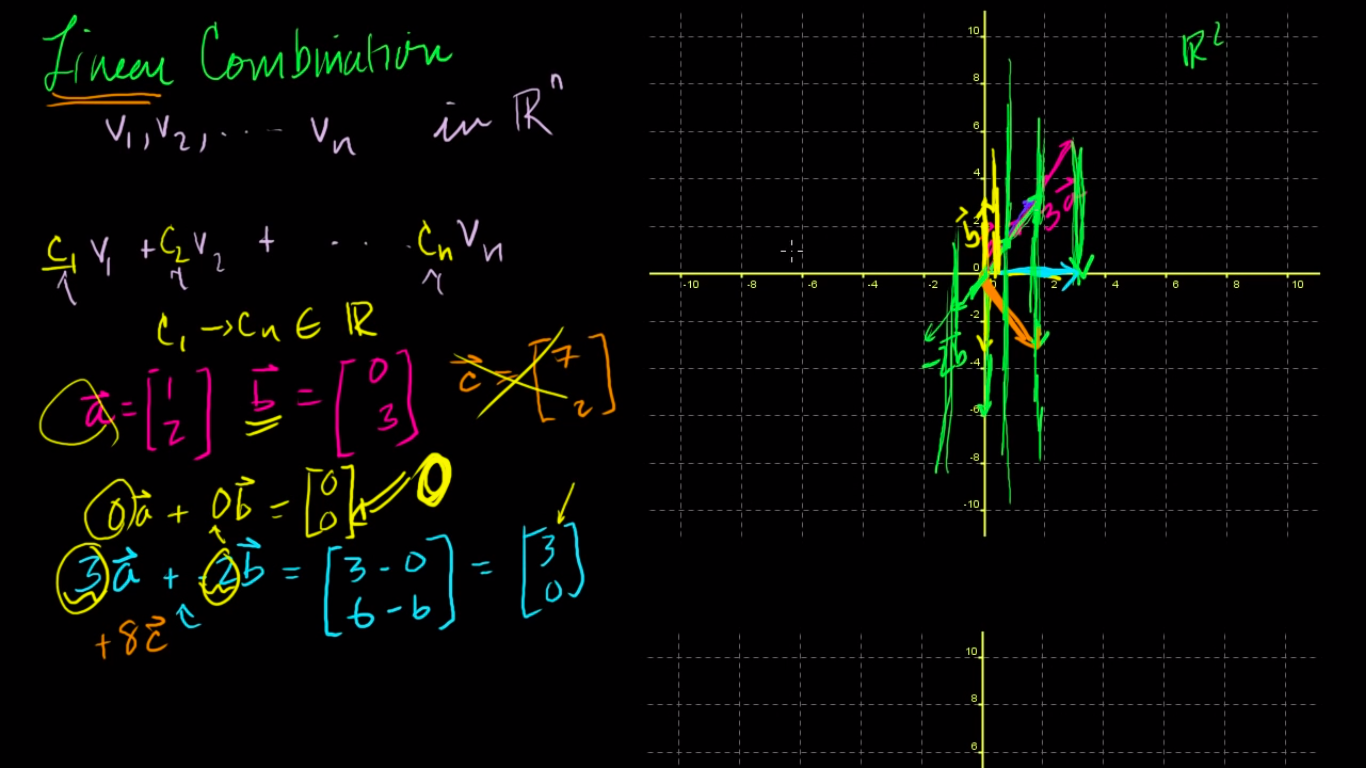 Linear Combination
v₁, v₂, ... vₙ in ℝⁿ
c₁v₁ + c₂v₂ + ... cₙvₙ
c₁ → cₙ ∈ ℝ
a⃗ = [1 2] b⃗ = [0 3] c⃗ = [7 2]
0a⃗ + 0b⃗ = [0 0] ← 0
3a⃗ + -2b⃗ = [3 - 0 6 - 6] = [3 0]
+8c⃗
ℝ²
10
8
6
4
2
0
-10 -8 -6 -4 -2 0 2 4 6 8 10
-2
-4
-6
-8
-10
b⃗
3a⃗
-2b⃗
10
8
6